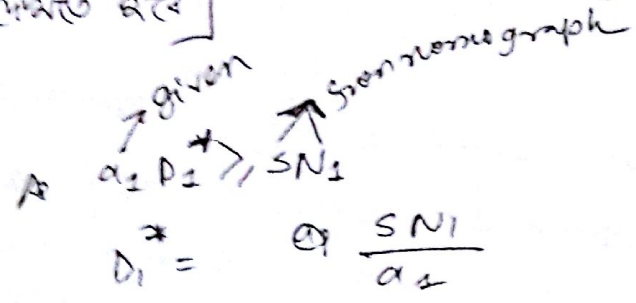 হবে]
given
from nomograph
a₁ D₁* ≥ SN₁
D₁* = SN1 / a₁